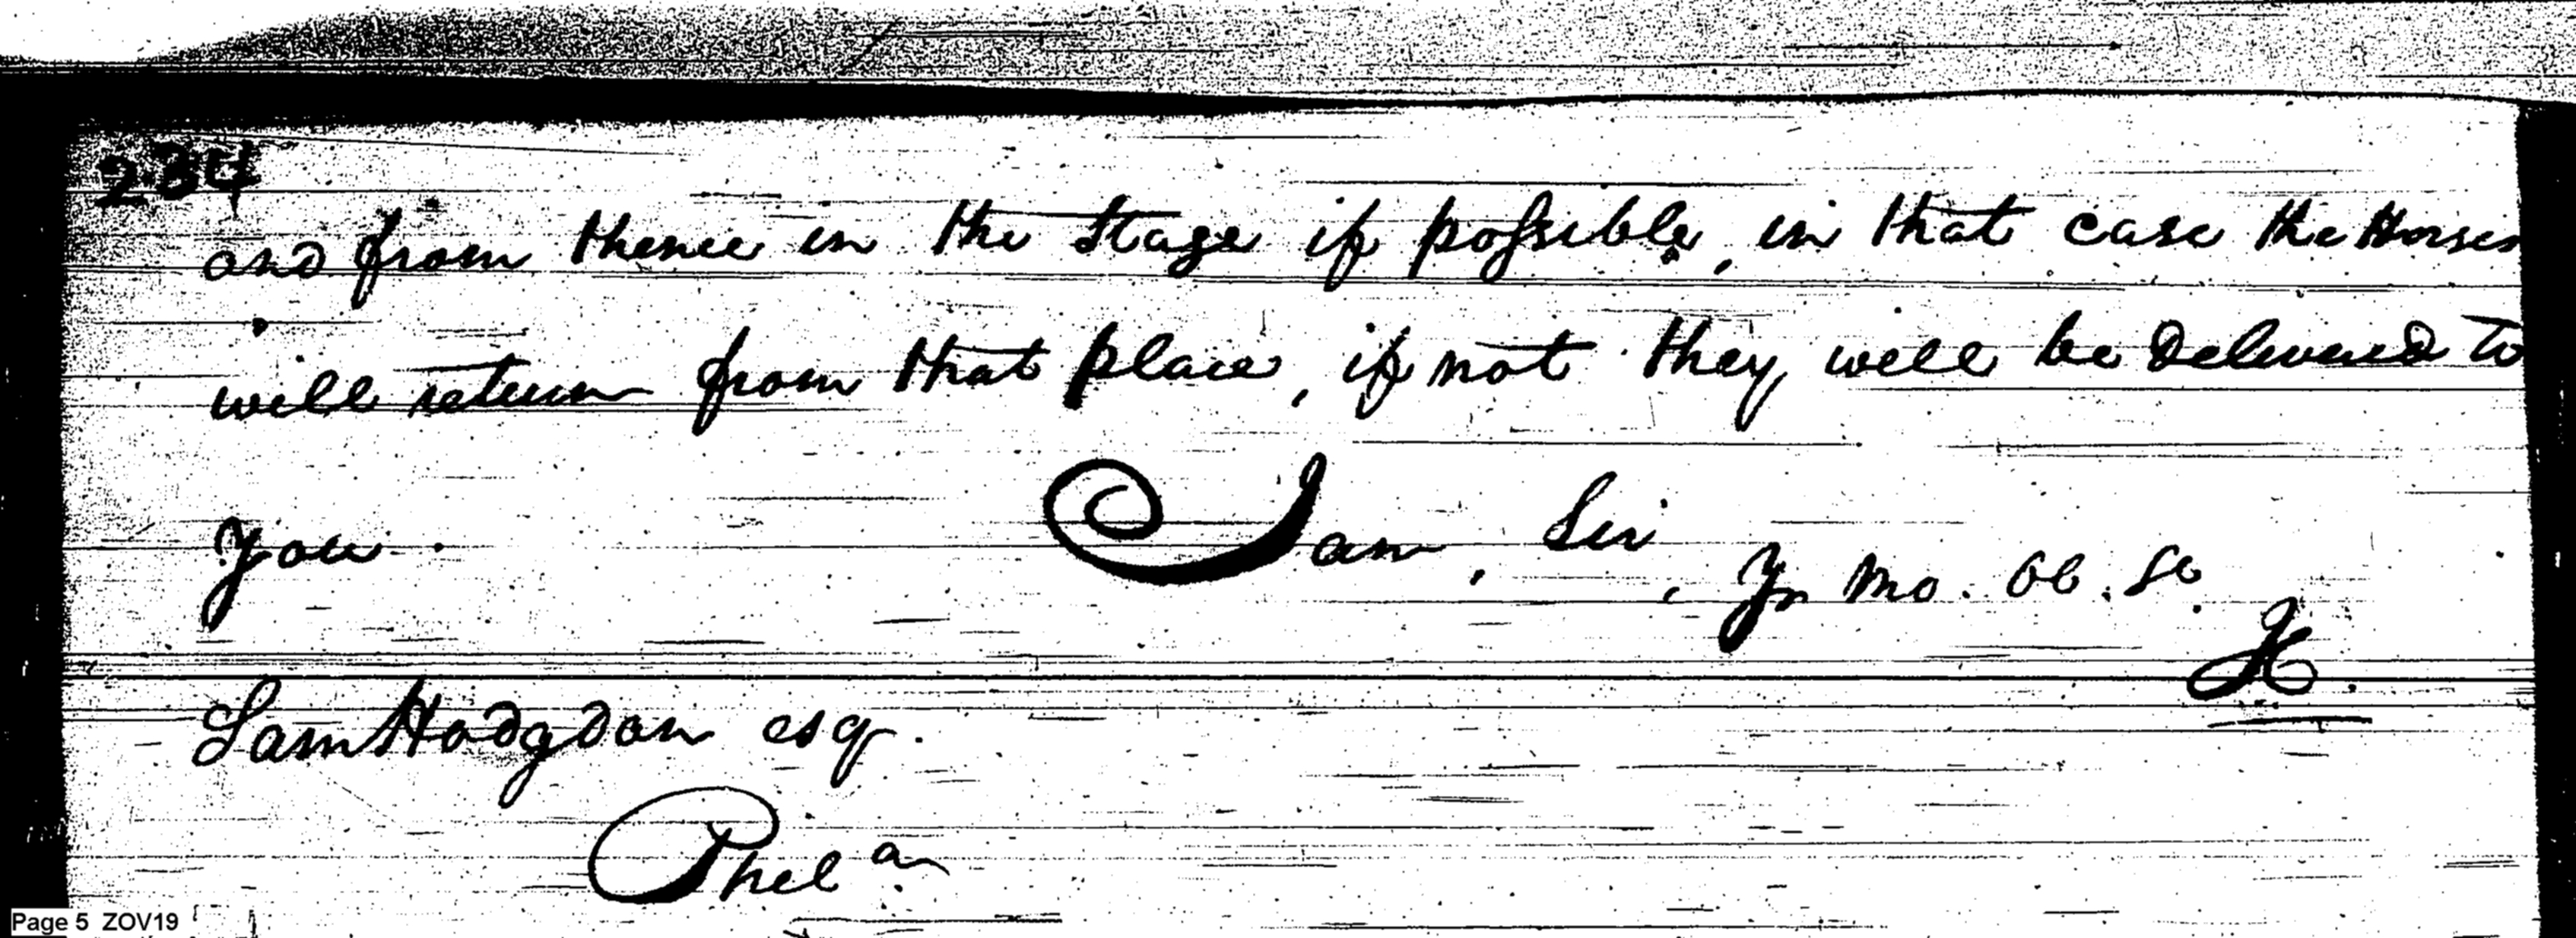 234
and from thence in the Stage if possible, in that case the Horses
will return from that place, if not they will be delivered to
you.
I am, Sir, Yr Mo. Ob. Se.
Sam Hodgdon esq.
Phela
Page 5 ZOV19